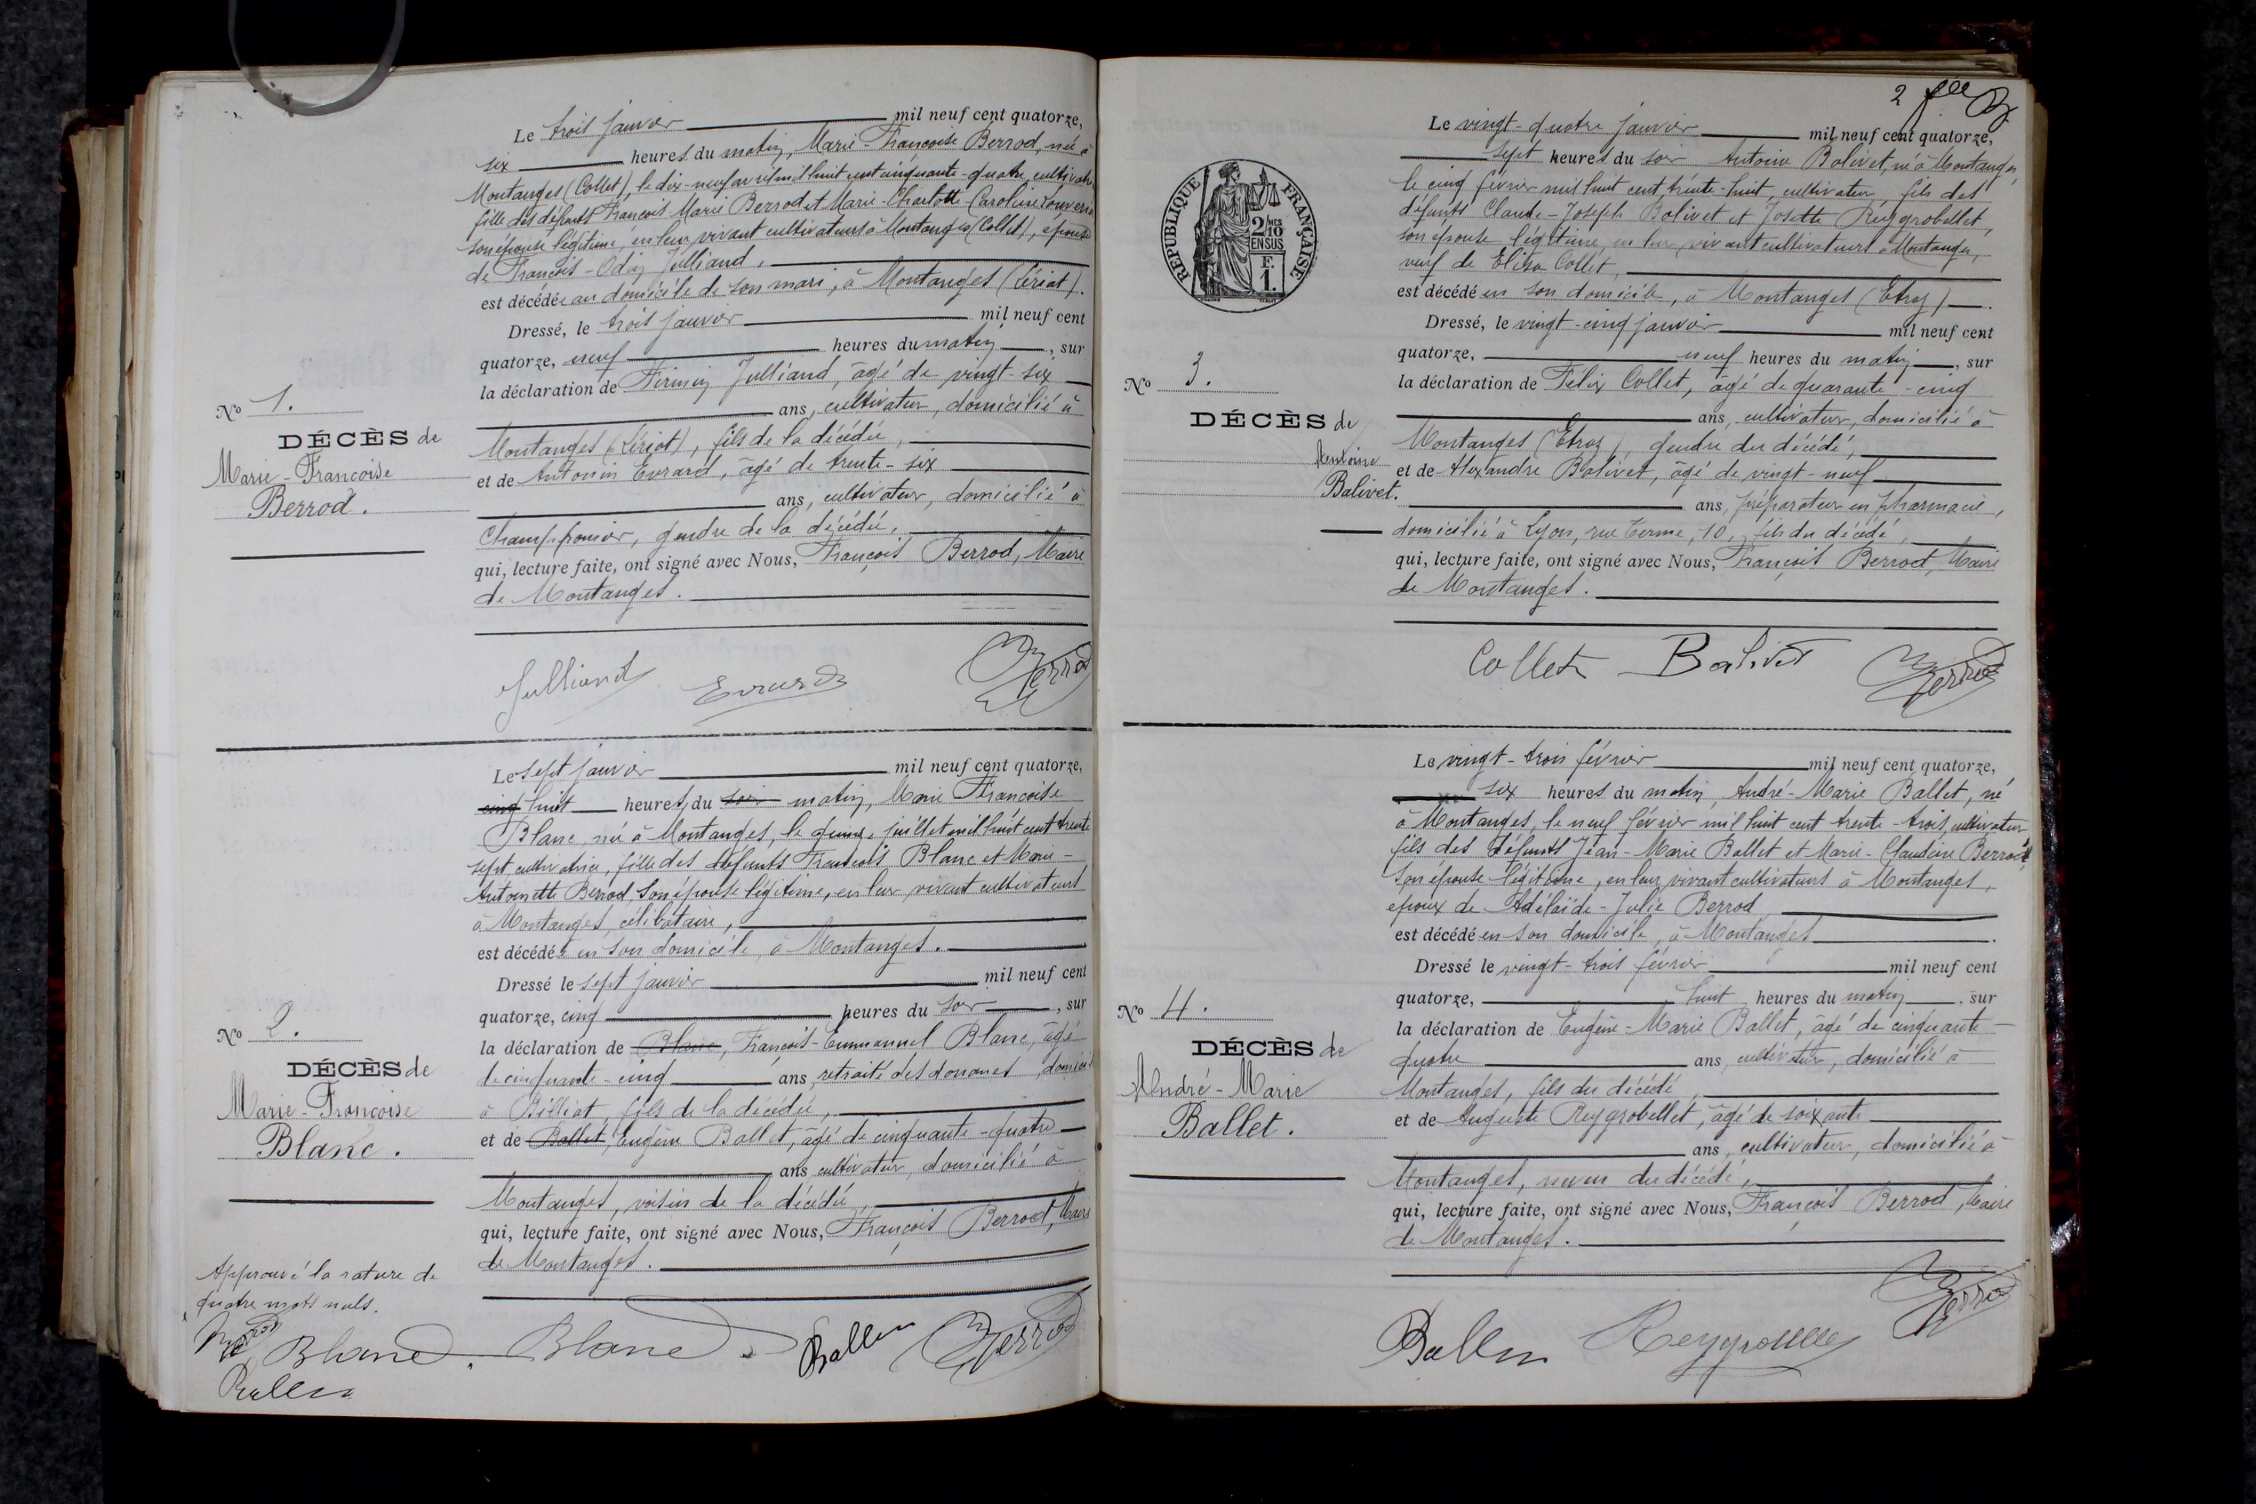 Le trois janvier mil neuf cent quatorze,
six heures du matin, Marie-Françoise Berrod, née à
Montanges (Collet), le dix-neuf avril mil huit cent cinquante-quatre, cultivatrice
fille des défunts François Marie Berrod et Marie-Charlotte Caroline
son épouse légitime, en leur vivant cultivateurs à Montanges (Collet), épouse
de François-Odin Julliand,
est décédée au domicile de son mari, à Montanges (Lériat).
Dressé, le trois janvier mil neuf cent
quatorze, neuf heures du matin, sur
la déclaration de Firmin Julliand, âgé de vingt-six
ans, cultivateur, domicilié à
Montanges (Lériat), fils de la décédée,
et de Antonin Evrard, âgé de trente-six
ans, cultivateur, domicilié à
Champfromier, gendre de la décédée,
qui, lecture faite, ont signé avec Nous, François Berrod, Maire
de Montanges.
No 1.
DÉCÈS de
Marie-Françoise
Berrod.
Julliand Evrard Berrod
Le sept janvier mil neuf cent quatorze,
cinq huit heures du soir matin, Marie Françoise
Blanc, née à Montanges, le juillet mil huit cent trente
sept cultivatrice, fille des défunts François Blanc et Marie-
Antoinette Berrod, son épouse légitime, en leur vivant cultivateurs
à Montanges, célibataire,
est décédée en son domicile, à Montanges.
Dressé le sept janvier mil neuf cent
quatorze, cinq heures du soir, sur
la déclaration de Blanc, François-Emmanuel Blanc, âgé
de cinquante-cinq ans, retraité des douanes, domicilié
à Billiat, fils de la décédée,
et de Ballet, Eugène Ballet, âgé de cinquante-quatre
ans, cultivateur, domicilié à
Montanges, voisin de la décédée,
qui, lecture faite, ont signé avec Nous, François Berrod, Maire
de Montanges.
No 2.
DÉCÈS de
Marie-Françoise
Blanc.
Approuvé la rature de
quatre mots nuls.
Berrod Blanc Blanc Ballet Berrod
Ballet
2
RÉPUBLIQUE FRANÇAISE
2/10 EN SUS
F. 1.
Le vingt-quatre janvier mil neuf cent quatorze,
sept heures du soir Antoine Balivet, né à Montanges,
le cinq février mil huit cent trente-huit, cultivateur, fils des
défunts Claude-Joseph Balivet et Josette Reygrobellet,
son épouse légitime, en leur vivant cultivateurs à Montanges,
veuf de Elisa Collet,
est décédé en son domicile, à Montanges (Etraz).
Dressé, le vingt-cinq janvier mil neuf cent
quatorze, neuf heures du matin, sur
la déclaration de Félix Collet, âgé de quarante-cinq
ans, cultivateur, domicilié à
Montanges (Etraz), gendre du décédé,
et de Alexandre Balivet, âgé de vingt-neuf
ans, préparateur en pharmacie,
domicilié à Lyon, rue Terme, 10, fils du décédé,
qui, lecture faite, ont signé avec Nous, François Berrod, Maire
de Montanges.
No 3.
DÉCÈS de
Antoine
Balivet.
Collet Balivet Berrod
Le vingt-trois février mil neuf cent quatorze,
six heures du matin, André-Marie Ballet, né
à Montanges, le neuf février mil huit cent trente-trois, cultivateur
fils des défunts Jean-Marie Ballet et Marie-Claudine Berrod,
son épouse légitime, en leur vivant cultivateurs à Montanges,
époux de Adélaïde-Julie Berrod
est décédé en son domicile, à Montanges.
Dressé le vingt-trois février mil neuf cent
quatorze, huit heures du matin, sur
la déclaration de Eugène-Marie Ballet, âgé de cinquante-
quatre ans, cultivateur, domicilié à
Montanges, fils du décédé,
et de Auguste Reygrobellet, âgé de soixante
ans, cultivateur, domicilié à
Montanges, neveu du décédé,
qui, lecture faite, ont signé avec Nous, François Berrod, Maire
de Montanges.
No 4.
DÉCÈS de
André-Marie
Ballet.
Ballet Reygrobellet Berrod